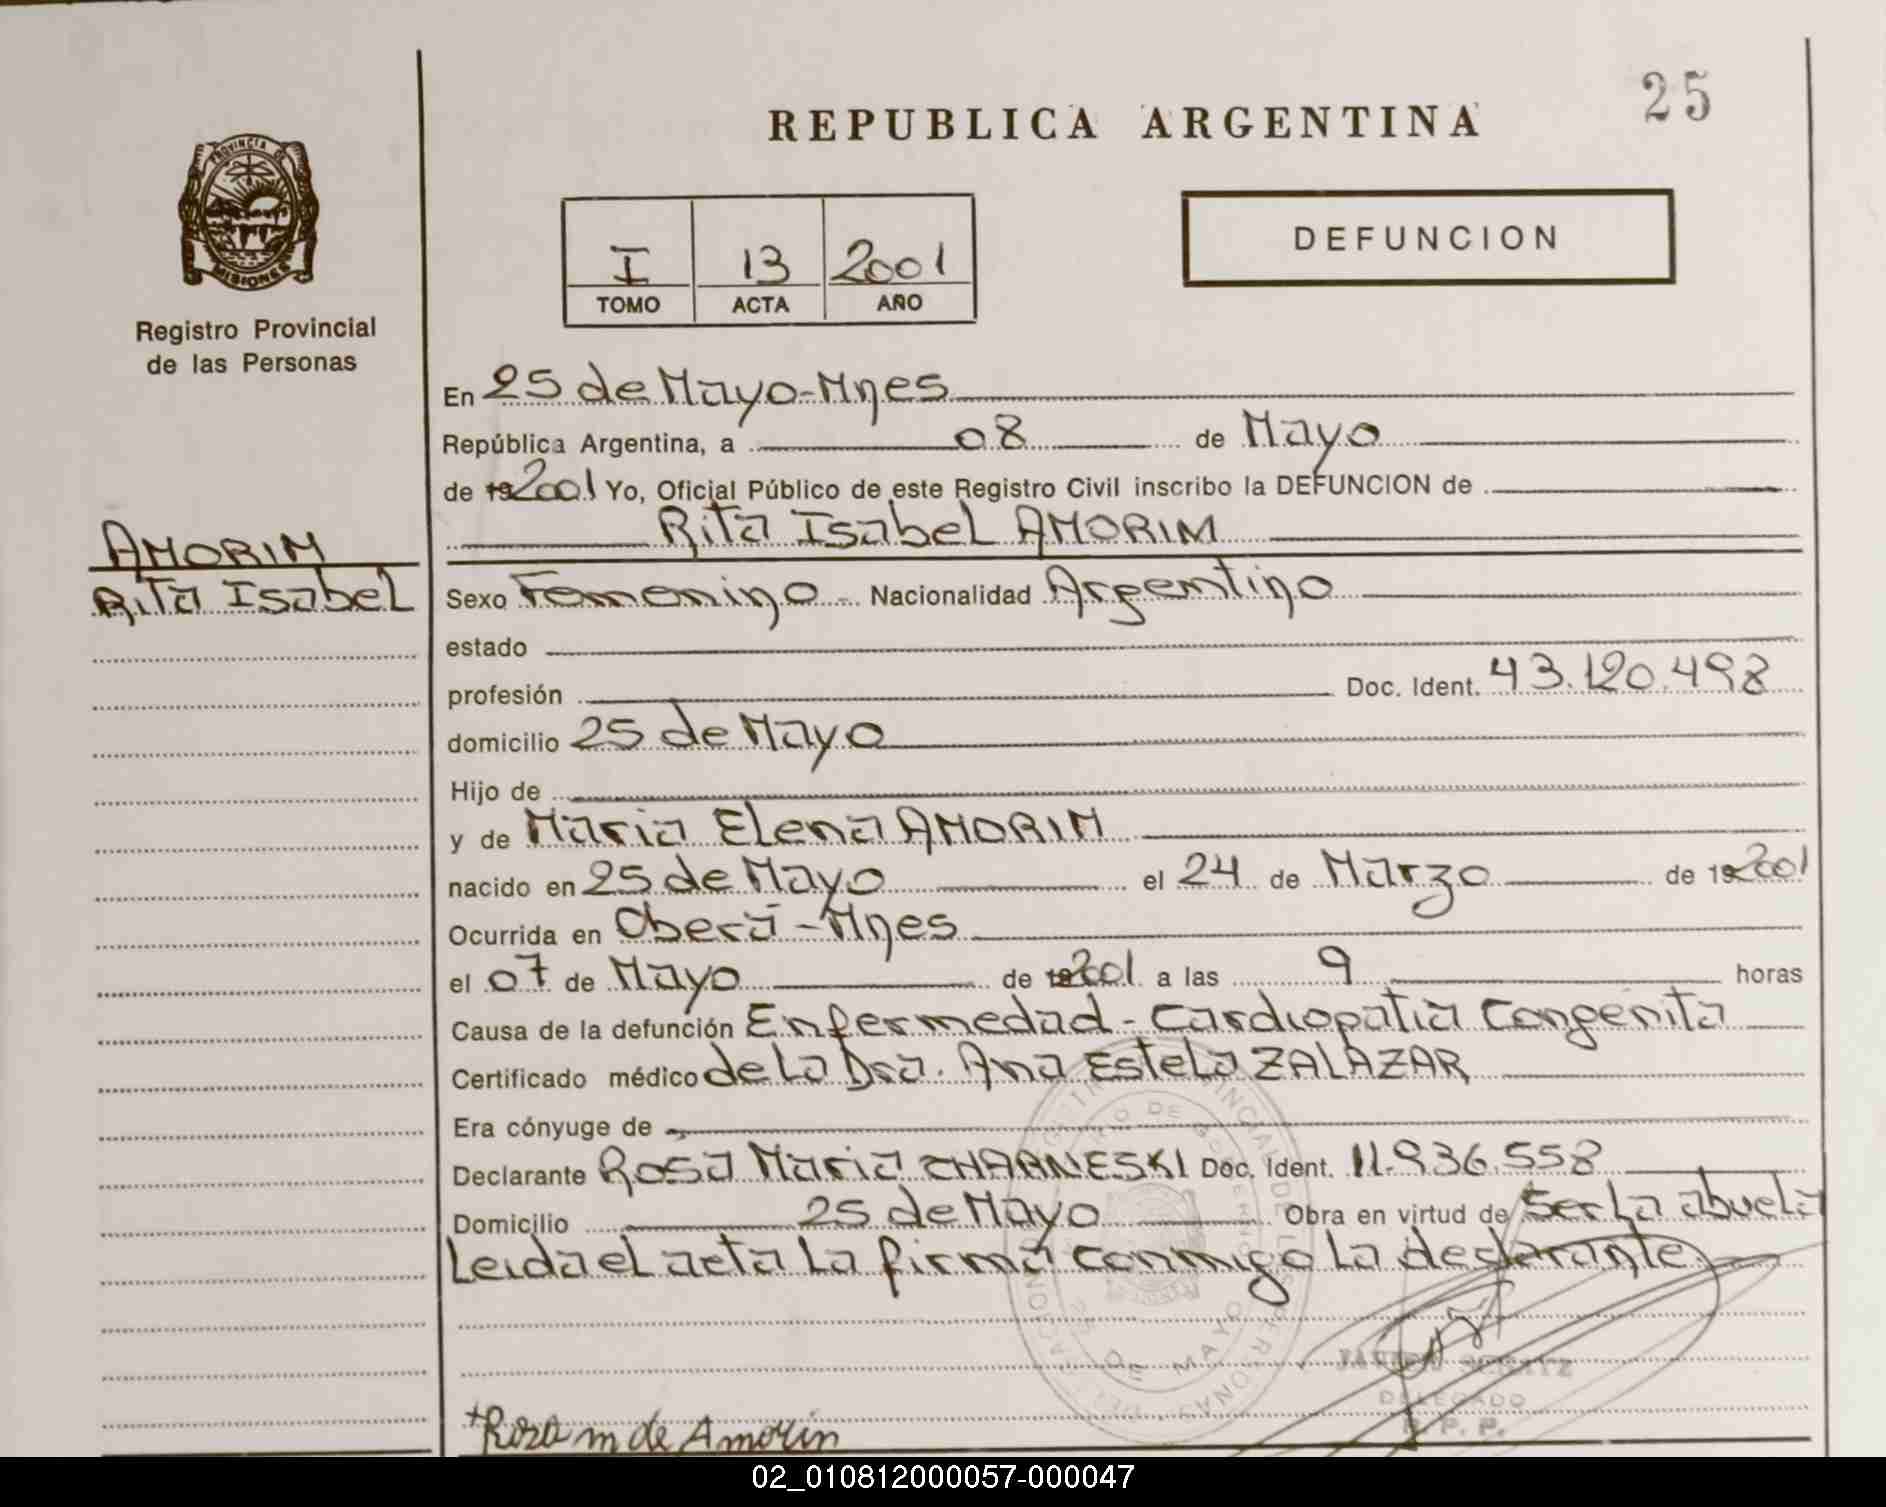 25
REPUBLICA ARGENTINA
PROVINCIA DE
MISIONES
Registro Provincial
de las Personas
I 13 2001
TOMO ACTA AÑO
DEFUNCION
En 25 de Mayo-Mnes
República Argentina, a 08 de Mayo
de 192001 Yo, Oficial Público de este Registro Civil inscribo la DEFUNCION de
Rita Isabel AMORIM
AMORIM
Rita Isabel
Sexo Femenino - Nacionalidad Argentino
estado
profesión Doc. Ident. 43.120.498
domicilio 25 de Mayo
Hijo de
y de Maria Elena AMORIM
nacido en 25 de Mayo el 24 de Marzo de 192001
Ocurrida en Oberá-Mnes
el 07 de Mayo de 192001 a las 9 horas
Causa de la defunción Enfermedad - Cardiopatia Congenita
Certificado médico de la Dra. Ana Estela ZALAZAR
Era cónyuge de
Declarante Rosa Maria CHARNESKI Doc. Ident. 11.936.558
Domicilio 25 de Mayo Obra en virtud de Ser la abuela
Leida el acta la firma conmigo la declarante
DE MAYO
DELEGADO
R. P. P.
+Rosa m de Amorin
02_010812000057-000047